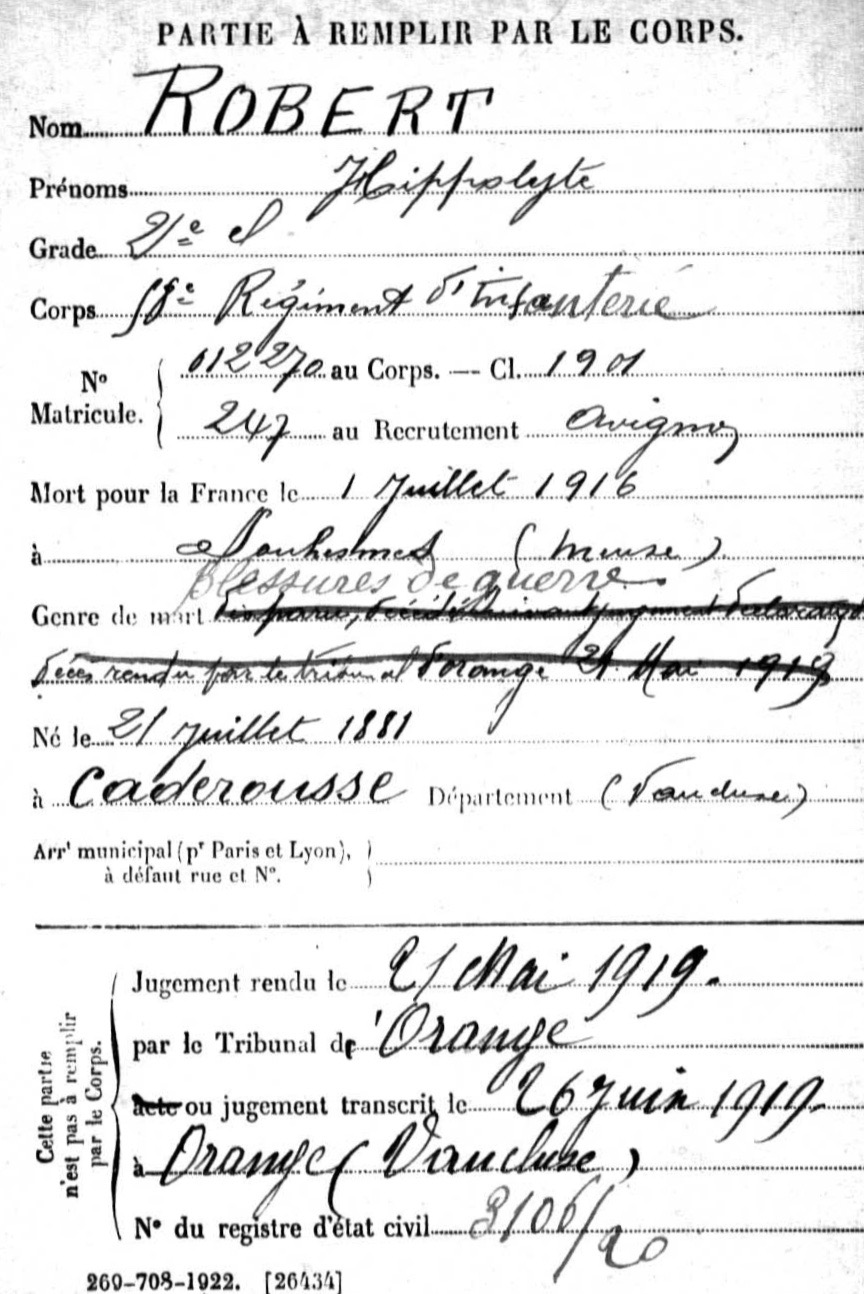 PARTIE À REMPLIR PAR LE CORPS.
Nom ROBERT
Prénoms Hippolyte
Grade 2e cl
Corps 58e Régiment d'Infanterie
No Matricule. { 012270 au Corps. — Cl. 1901
247 au Recrutement Avignon
Mort pour la France le 1 Juillet 1916
à Souhesmes (Meuse)
blessures de guerre.
Genre de mort disparu, décédé suivant jugement déclaratif
décès rendu par le tribunal d'orange 21 Mai 1919
Né le 21 Juillet 1881
à Caderousse Département (Vaucluse)
Arrt municipal (pr Paris et Lyon), }
à défaut rue et No.
Cette partie n'est pas à remplir par le Corps.
Jugement rendu le 21 Mai 1919.
par le Tribunal de 'Orange
acte ou jugement transcrit le 26 Juin 1919.
à Orange (Vaucluse)
No du registre d'état civil 3106/20
269-708-1922. [26434]